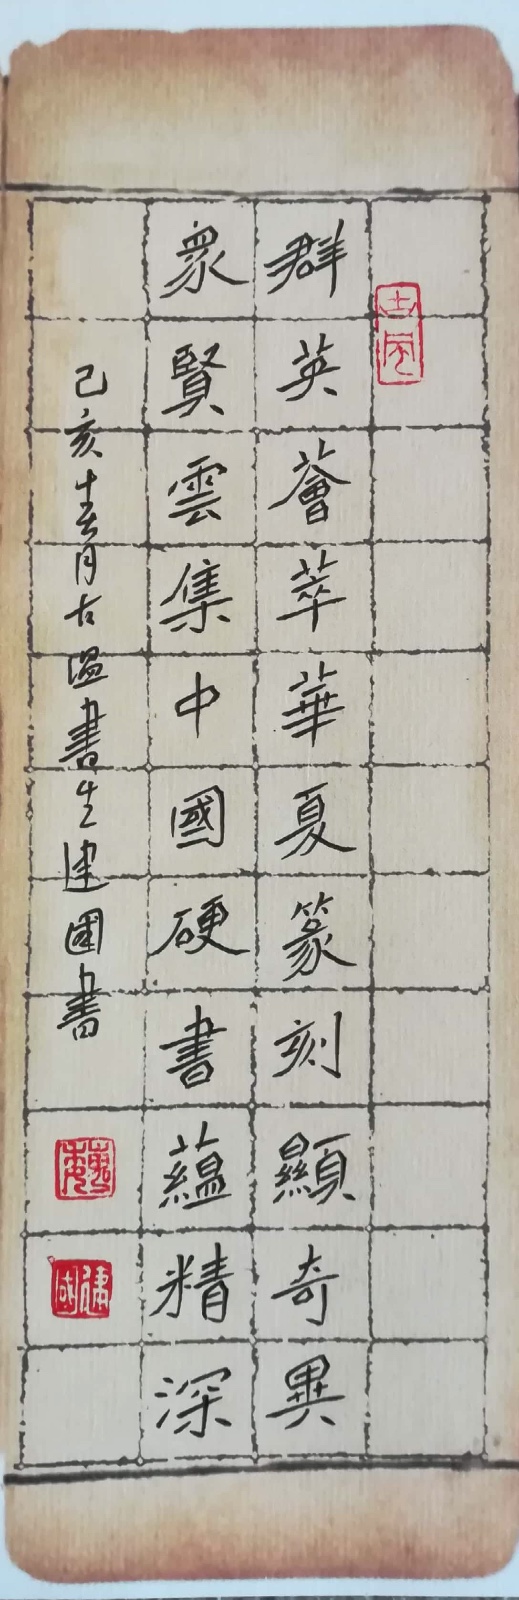 群英薈萃華夏篆刻顯奇異
眾賢雲集中國硬書蘊精深
己亥月古溫書生建國書
魏
建國